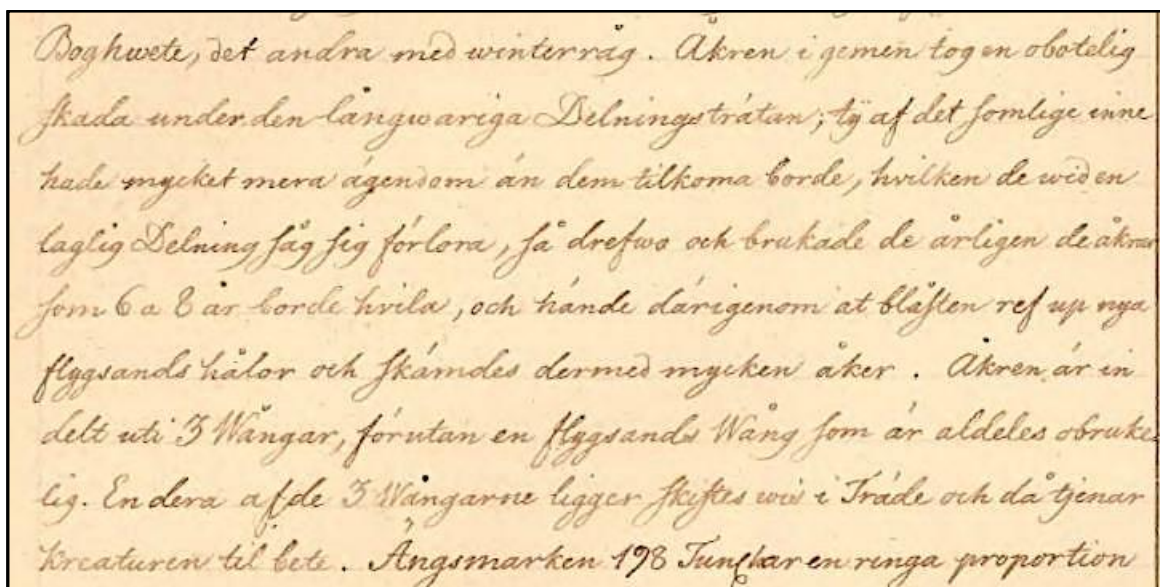 Boghwete, det andra med winterråg. Åkren i gemen tog en obotelig
skada under den långwariga Delningsträtan; ty af det somlige inne
hade mycket mera ägendom än dem tilkoma borde, hvilken de wid en
laglig Delning såg sig förlora, så drefwo och brukade de årligen de åkrar
som 6 a 8 år borde hvila, och hände därigenom at blåsten ref up nya
flygsands hålor och skämdes dermed mycken åker. Åkren är in
delt uti 3 Wångar, förutan en flygsands Wång som är aldeles obruke
lig. Endera af de 3 Wångarne ligger skiftes wis i Träde och då tjenar
kreaturen til bete. Ängsmarken 198 har en ringa proportion